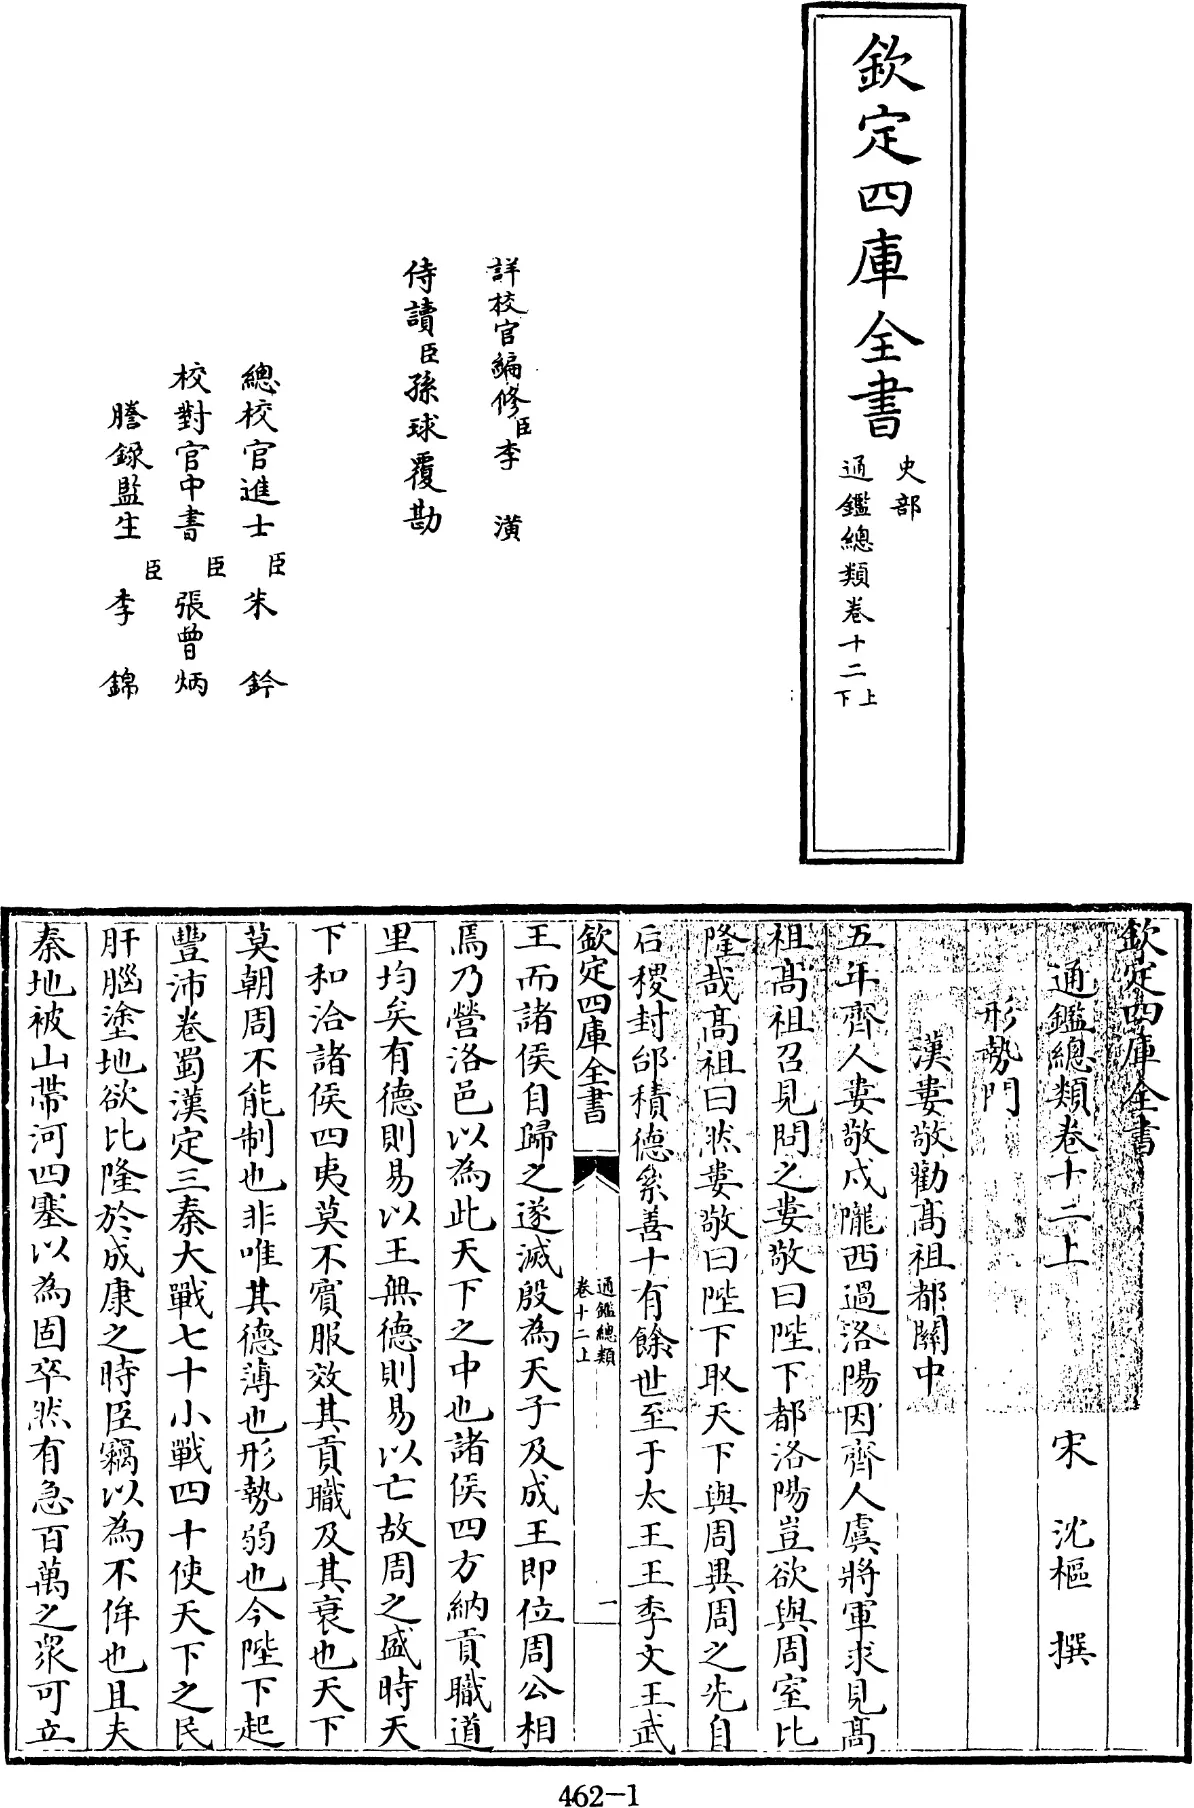 欽定四庫全書
史部
通鑑總類卷十二上
下
詳校官編修臣李潢
侍讀臣孫球覆勘
總校官進士臣朱鈐
校對官中書臣張曾炳
謄錄監生臣李錦
欽定四庫全書
通鑑總類卷十二上
宋 沈樞 撰
形勢門
漢婁敬勸髙祖都關中
五年齊人婁敬戍隴西過洛陽因齊人虞將軍求見髙
祖髙祖召見問之婁敬曰陛下都洛陽豈欲與周室比
隆哉髙祖曰然婁敬曰陛下取天下與周異周之先自
后稷封邰積德絫善十有餘世至于太王王季文王武
欽定四庫全書
通鑑總類
卷十二上
一
王而諸侯自歸之遂滅殷為天子及成王即位周公相
焉乃營洛邑以為此天下之中也諸侯四方納貢職道
里均矣有德則易以王無德則易以亡故周之盛時天
下和洽諸侯四夷莫不賓服效其貢職及其衰也天下
莫朝周不能制也非唯其德薄也形勢弱也今陛下起
豐沛卷蜀漢定三秦大戰七十小戰四十使天下之民
肝腦塗地欲比隆於成康之時臣竊以為不侔也且夫
秦地被山帶河四塞以為固卒然有急百萬之衆可立
462-1